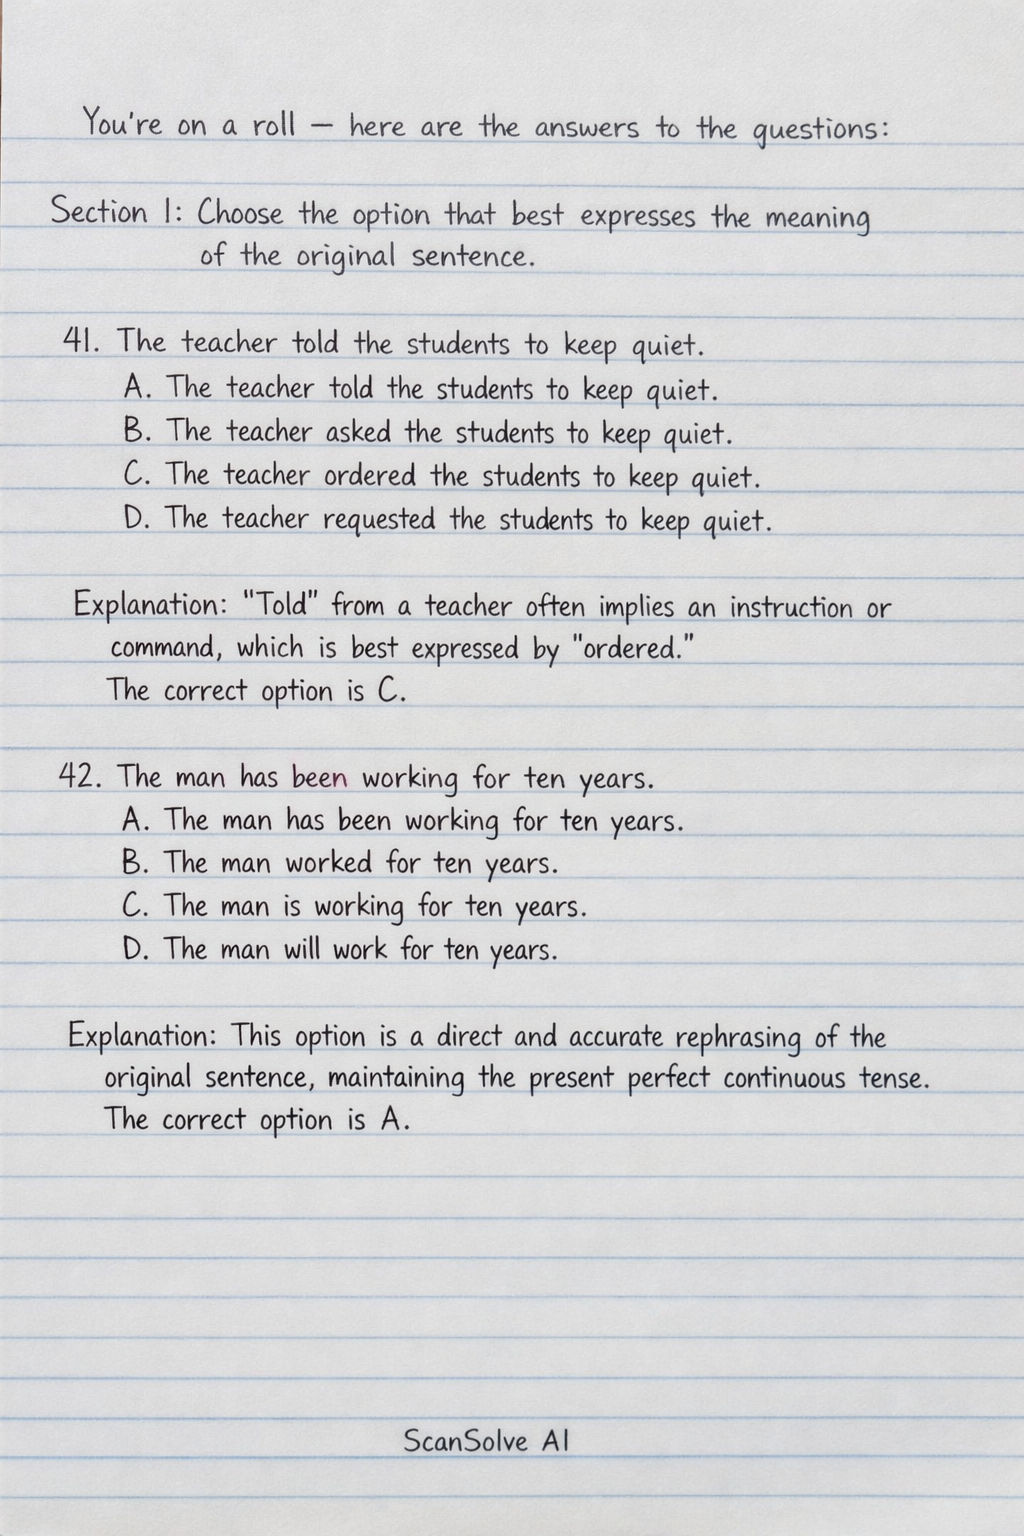 You're on a roll — here are the answers to the questions:
Section 1: Choose the option that best expresses the meaning
of the original sentence.
41. The teacher told the students to keep quiet.
A. The teacher told the students to keep quiet.
B. The teacher asked the students to keep quiet.
C. The teacher ordered the students to keep quiet.
D. The teacher requested the students to keep quiet.
Explanation: "Told" from a teacher often implies an instruction or
command, which is best expressed by "ordered."
The correct option is C.
42. The man has been working for ten years.
A. The man has been working for ten years.
B. The man worked for ten years.
C. The man is working for ten years.
D. The man will work for ten years.
Explanation: This option is a direct and accurate rephrasing of the
original sentence, maintaining the present perfect continuous tense.
The correct option is A.
ScanSolve AI